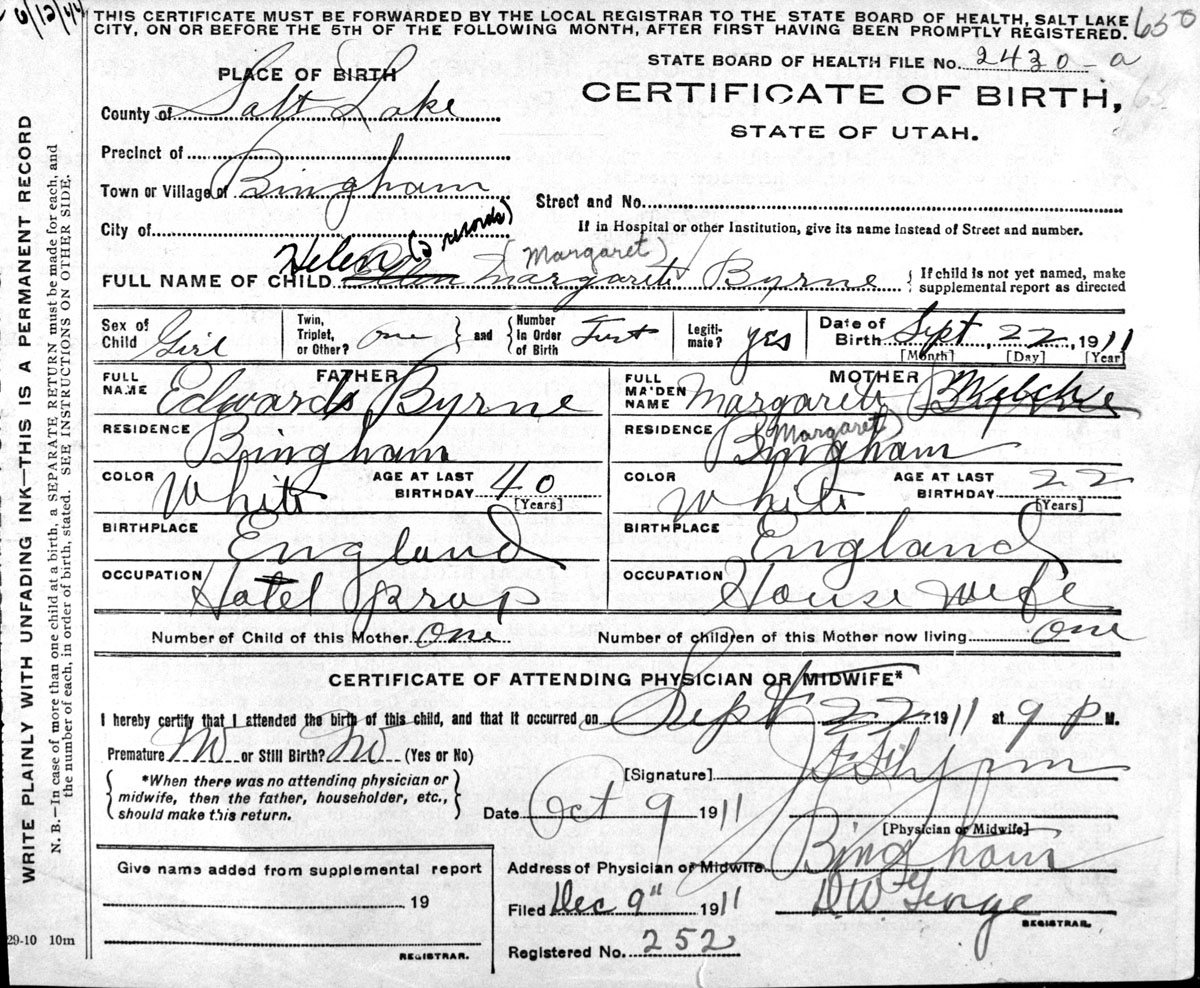 6/12/44
THIS CERTIFICATE MUST BE FORWARDED BY THE LOCAL REGISTRAR TO THE STATE BOARD OF HEALTH, SALT LAKE
CITY, ON OR BEFORE THE 5TH OF THE FOLLOWING MONTH, AFTER FIRST HAVING BEEN PROMPTLY REGISTERED.
650
STATE BOARD OF HEALTH FILE No. 2430-a
PLACE OF BIRTH
CERTIFICATE OF BIRTH,
STATE OF UTAH.
County of Salt Lake
Precinct of
Town or Village of Bingham
Street and No.
City of
If in Hospital or other Institution, give its name instead of Street and number.
Helen (2 records)
(Margaret)
FULL NAME OF CHILD Ellen Margarite Byrne
{ If child is not yet named, make
supplemental report as directed
Sex of Child Girl
Twin, Triplet, or Other? One } and { Number In Order of Birth First
Legitimate? yes
Date of Birth Sept, 22, 1911
[Month] [Day] [Year]
FATHER
FULL NAME Edward Byrne
RESIDENCE Bingham
COLOR White
AGE AT LAST BIRTHDAY 40
[Years]
BIRTHPLACE England
OCCUPATION Hotel Prop
MOTHER
FULL MAIDEN NAME Margarite
(Margaret)
RESIDENCE Bingham
COLOR White
AGE AT LAST BIRTHDAY 22
[Years]
BIRTHPLACE England
OCCUPATION House wife
Number of Child of this Mother One
Number of children of this Mother now living One
CERTIFICATE OF ATTENDING PHYSICIAN OR MIDWIFE*
I hereby certify that I attended the birth of this child, and that it occurred on Sept 22 1911 at 9 P M.
Premature No or Still Birth? No (Yes or No)
{ *When there was no attending physician or
midwife, then the father, householder, etc.,
should make this return. }
[Signature]
Date Oct 9 1911
[Physician or Midwife]
Address of Physician or Midwife Bingham
Filed Dec 9" 1911
D W George
REGISTRAR.
Registered No. 252
Give name added from supplemental report
19
REGISTRAR.
29-10 10m
WRITE PLAINLY WITH UNFADING INK—THIS IS A PERMANENT RECORD
N. B.—In case of more than one child at a birth, a SEPARATE RETURN must be made for each, and
the number of each, in order of birth, stated. SEE INSTRUCTIONS ON OTHER SIDE.